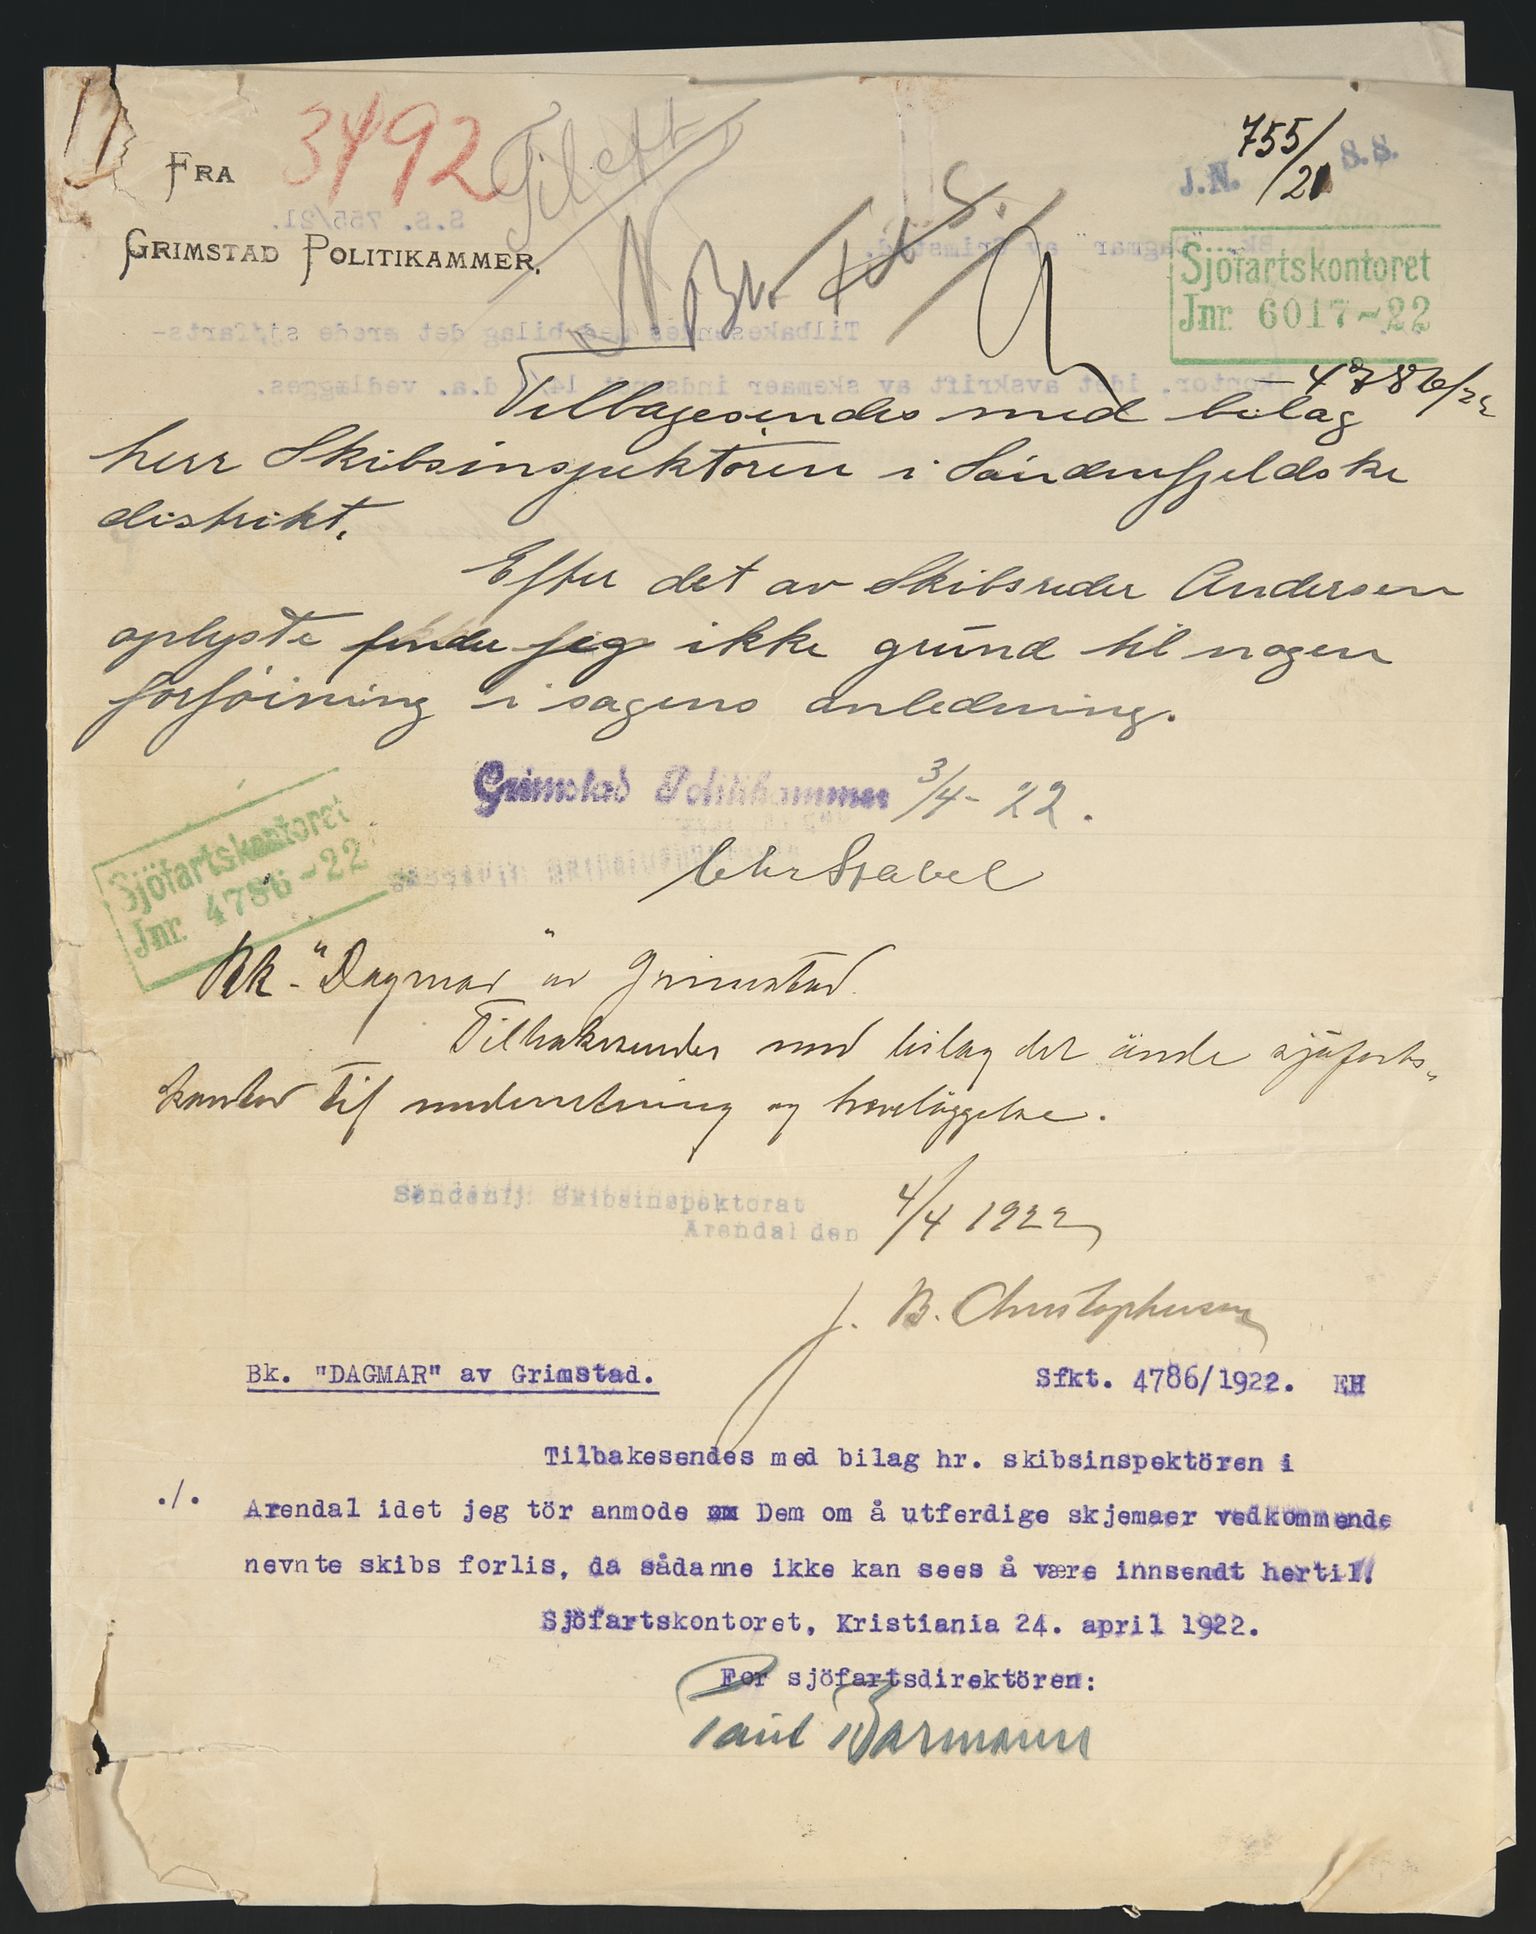 FRA
3492
Til eft
GRIMSTAD POLITIKAMMER.
J.N. 755/21 S.S.
Sjöfartskontoret
Jnr. 6017-22
- 4786/22
Tilbagesendes med bilag
herr Skibsinspektøren i Søndenfjeldske
distrikt.
Efter det av Skibsreder Andersen
oplyste finder jeg ikke grund til nogen
forføining i sagens anledning.
Grimstad Politikammer 3/4-22.
Chr Stabel
Sjöfartskontoret
Jnr. 4786-22
Bk. "Dagmar" av Grimstad.
Tilbakesendes med bilag det ærede sjøfarts-
kontor til underretning og henlæggelse.
Søndenfj. Skibsinspektorat
Arendal den 4/4 1922
J. B. Christophersen
Bk. "DAGMAR" av Grimstad. Sfkt. 4786/1922. EH
Tilbakesendes med bilag hr. skibsinspektören i
./. Arendal idet jeg tör anmode Dem om å utferdige skjemaer vedkommende
nevnte skibs forlis, da sådanne ikke kan sees å være innsendt hertil.
Sjöfartskontoret, Kristiania 24. april 1922.
For sjöfartsdirektören:
Paul Barmann